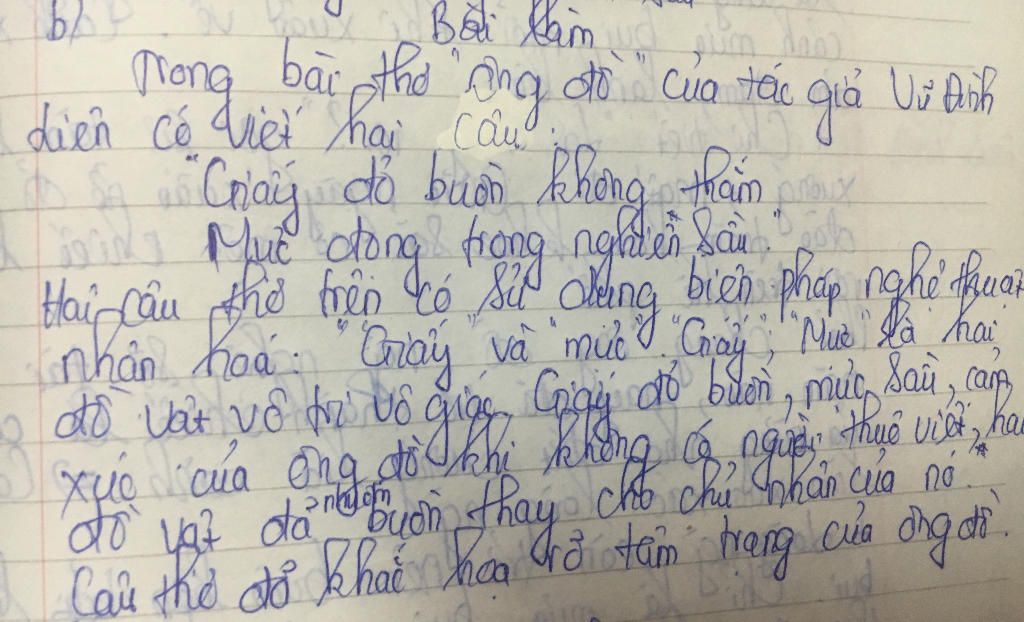 b)
Bài làm
Trong bài thơ "ông đồ" của tác giả Vũ Đình
Liên có viết hai câu:
"Giấy đỏ buồn không thắm
Mực đọng trong nghiên sầu."
Hai câu thơ trên có sử dụng biện pháp nghệ thuật
nhân hoá: "Giấy" và "mực". "Giấy", "Mực" là hai
đồ vật vô tri vô giác. Giấy đỏ buồn, mực sầu, cảm
xúc của ông đồ khi không có người thuê viết, hai
đồ vật đã nhuốm buồn thay cho chủ nhân của nó.
Câu thơ đã khắc hoạ rõ tâm trạng của ông đồ.